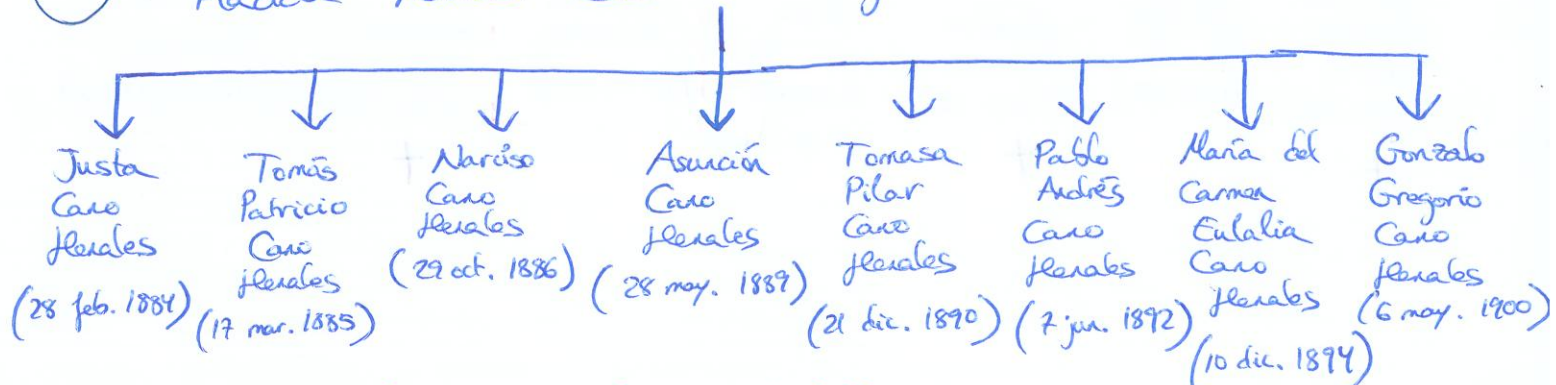 Justa
Cano
Henales
(28 feb. 1884)
Tomás
Patricio
Cano
Henales
(17 mar. 1885)
Narciso
Cano
Henales
(29 oct. 1886)
Asunción
Cano
Henales
(28 may. 1889)
Tomasa
Pilar
Cano
Henales
(21 dic. 1890)
Pablo
Andrés
Cano
Henales
(7 jun. 1892)
María del
Carmen
Eulalia
Cano
Henales
(10 dic. 1894)
Gonzalo
Gregorio
Cano
Henales
(6 may. 1900)